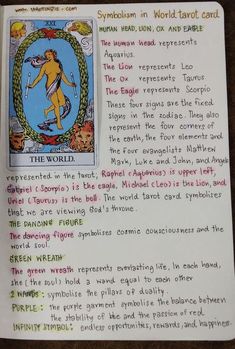 Symbolism in World tarot card
HUMAN HEAD, LION, OX AND EAGLE
XXI.
The human head represents
Aquarius.
The Lion represents Leo
The Ox represents Taurus
The Eagle represents Scorpio
These four signs are the fixed
signs in the zodiac. They also
represent the four corners of
the earth, the four elements and
the four evangelists Matthew
THE WORLD.
Mark, Luke and John, and Angels
represented in the tarot, Raphel (Aquarius) is upper left,
Gabriel (Scorpio) is the eagle, Michael (Leo) is the Lion, and
Uriel (Taurus) is the bull. The world tarot card symbolises
that we are viewing God's throne.
THE DANCING FIGURE
The dancing figure symbolises cosmic consciousness and the
world soul.
GREEN WREATH
The green wreath represents everlasting life, In each hand,
she (the soul) hold a wand equal to each other
2 WANDS: symbolise the pillars of duality.
PURPLE: the purple garment symbolise the balance between
the stability of blue and the passion of red.
INFINITY SYMBOL: endless oppotunities, rewards, and happiness.